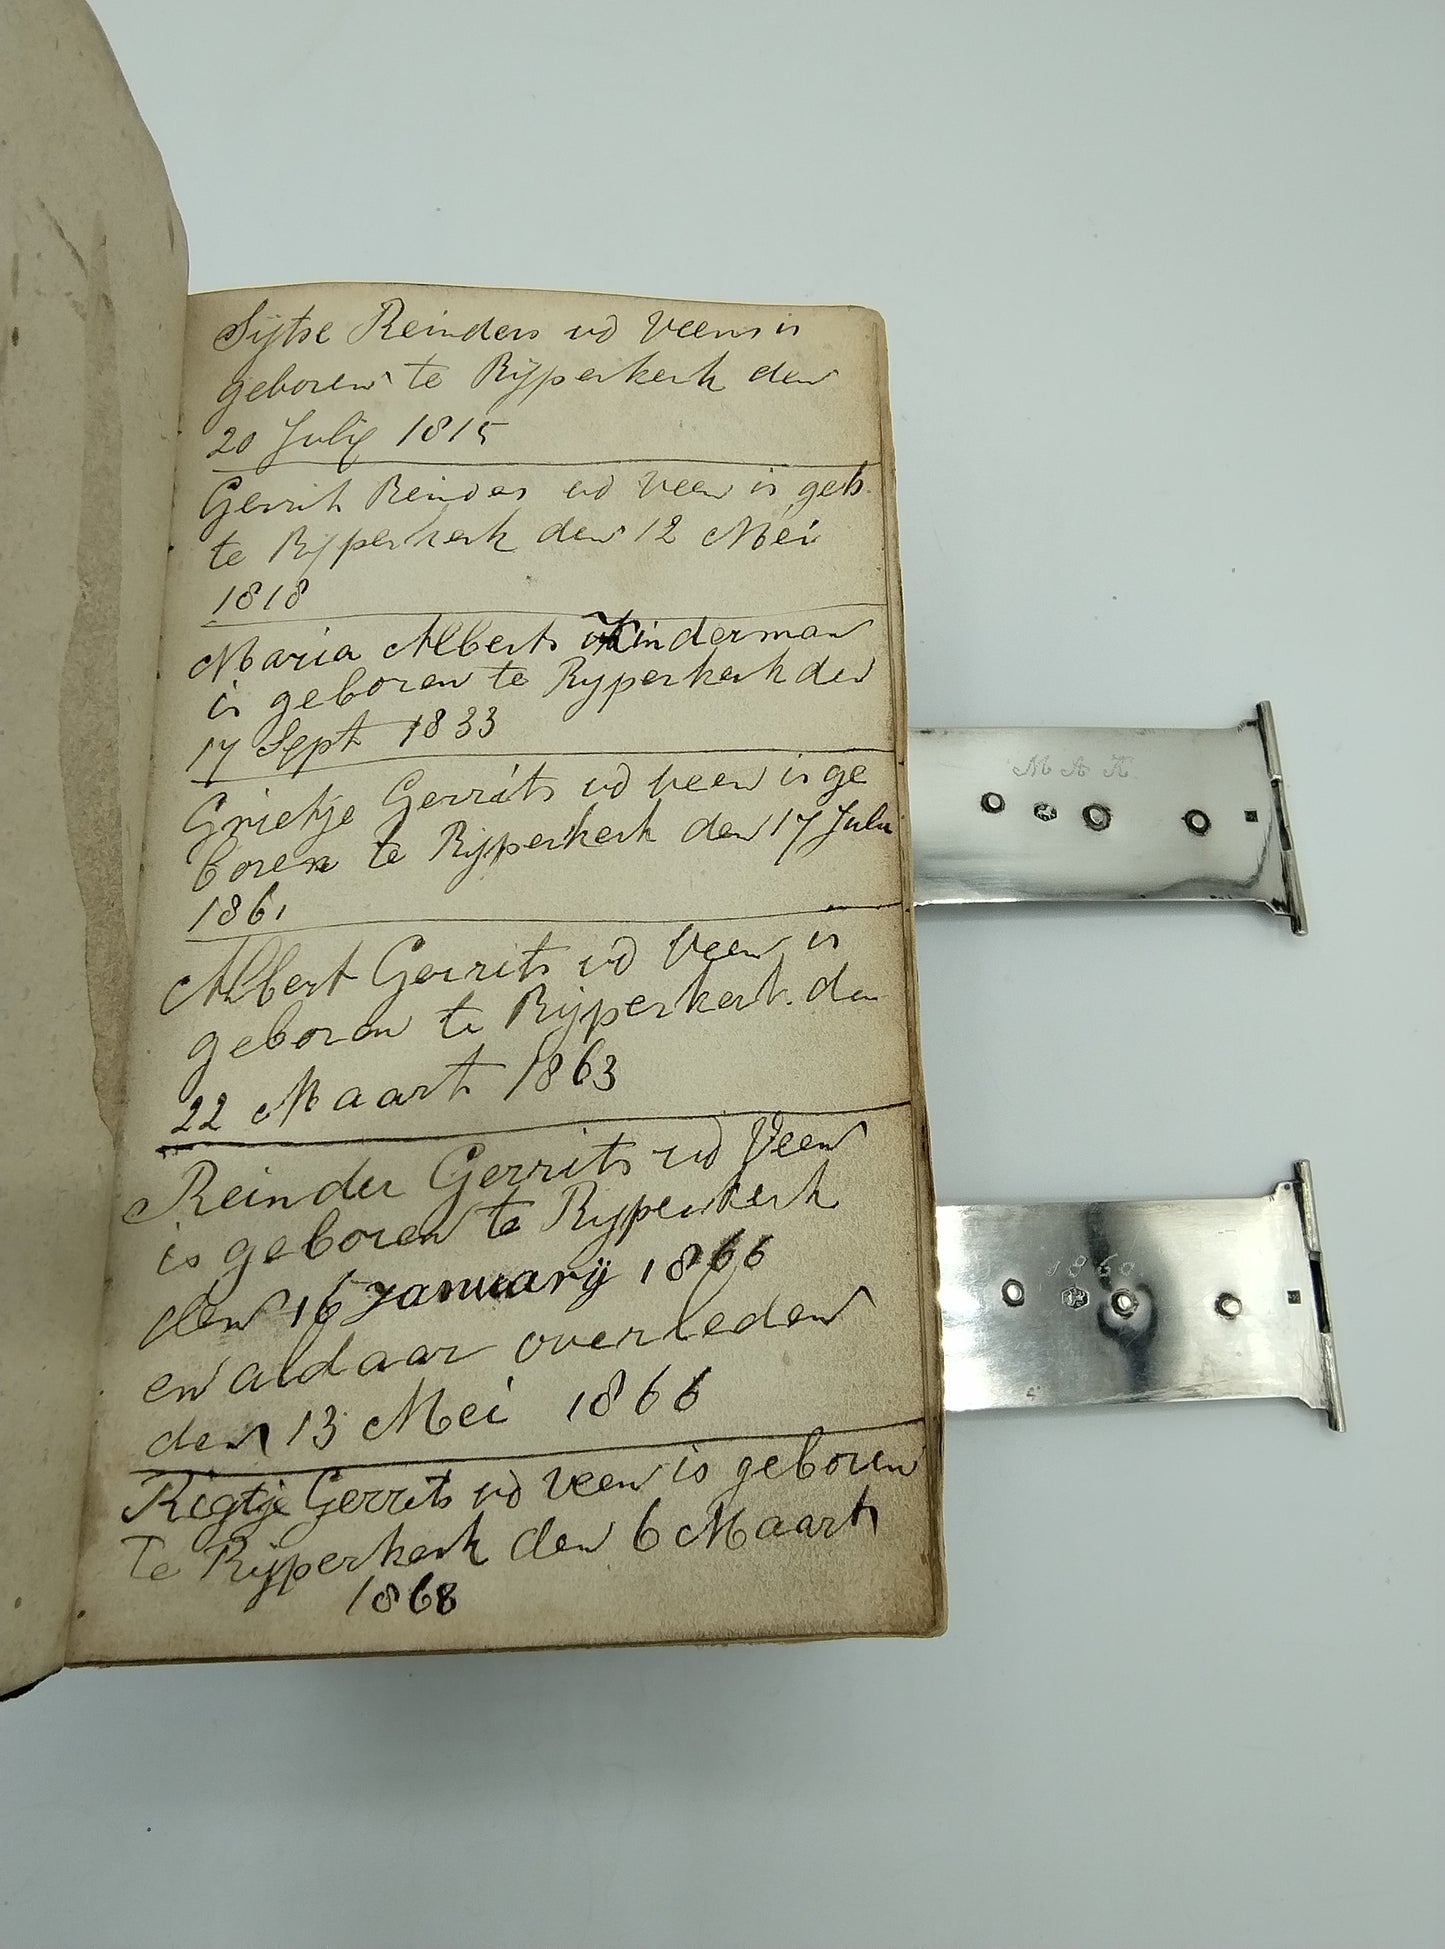 Sijtse Reinders vd Veen is
geboren te Rijperkerk den
20 Julij 1815
Gerrit Reinders vd Veen is geb.
te Rijperkerk den 12 Mei
1818
Maria Alberts Kinderman
is geboren te Ryperkerk den
17 Sept 1833
Grietje Gerrits vd Veen is ge
boren te Rijperkerk den 17 Julu
1861
Albert Gerrits vd Veen is
geboren te Rijperkerk den
22 Maart 1863
Reinder Gerrits vd Veen
is geboren te Ryperkerk
den 16 Januarij 1866
en aldaar overleden
den 13 Mei 1866
Rigtje Gerrits vd Veen is geboren
te Rijperkerk den 6 Maart
1868
M A K
1860